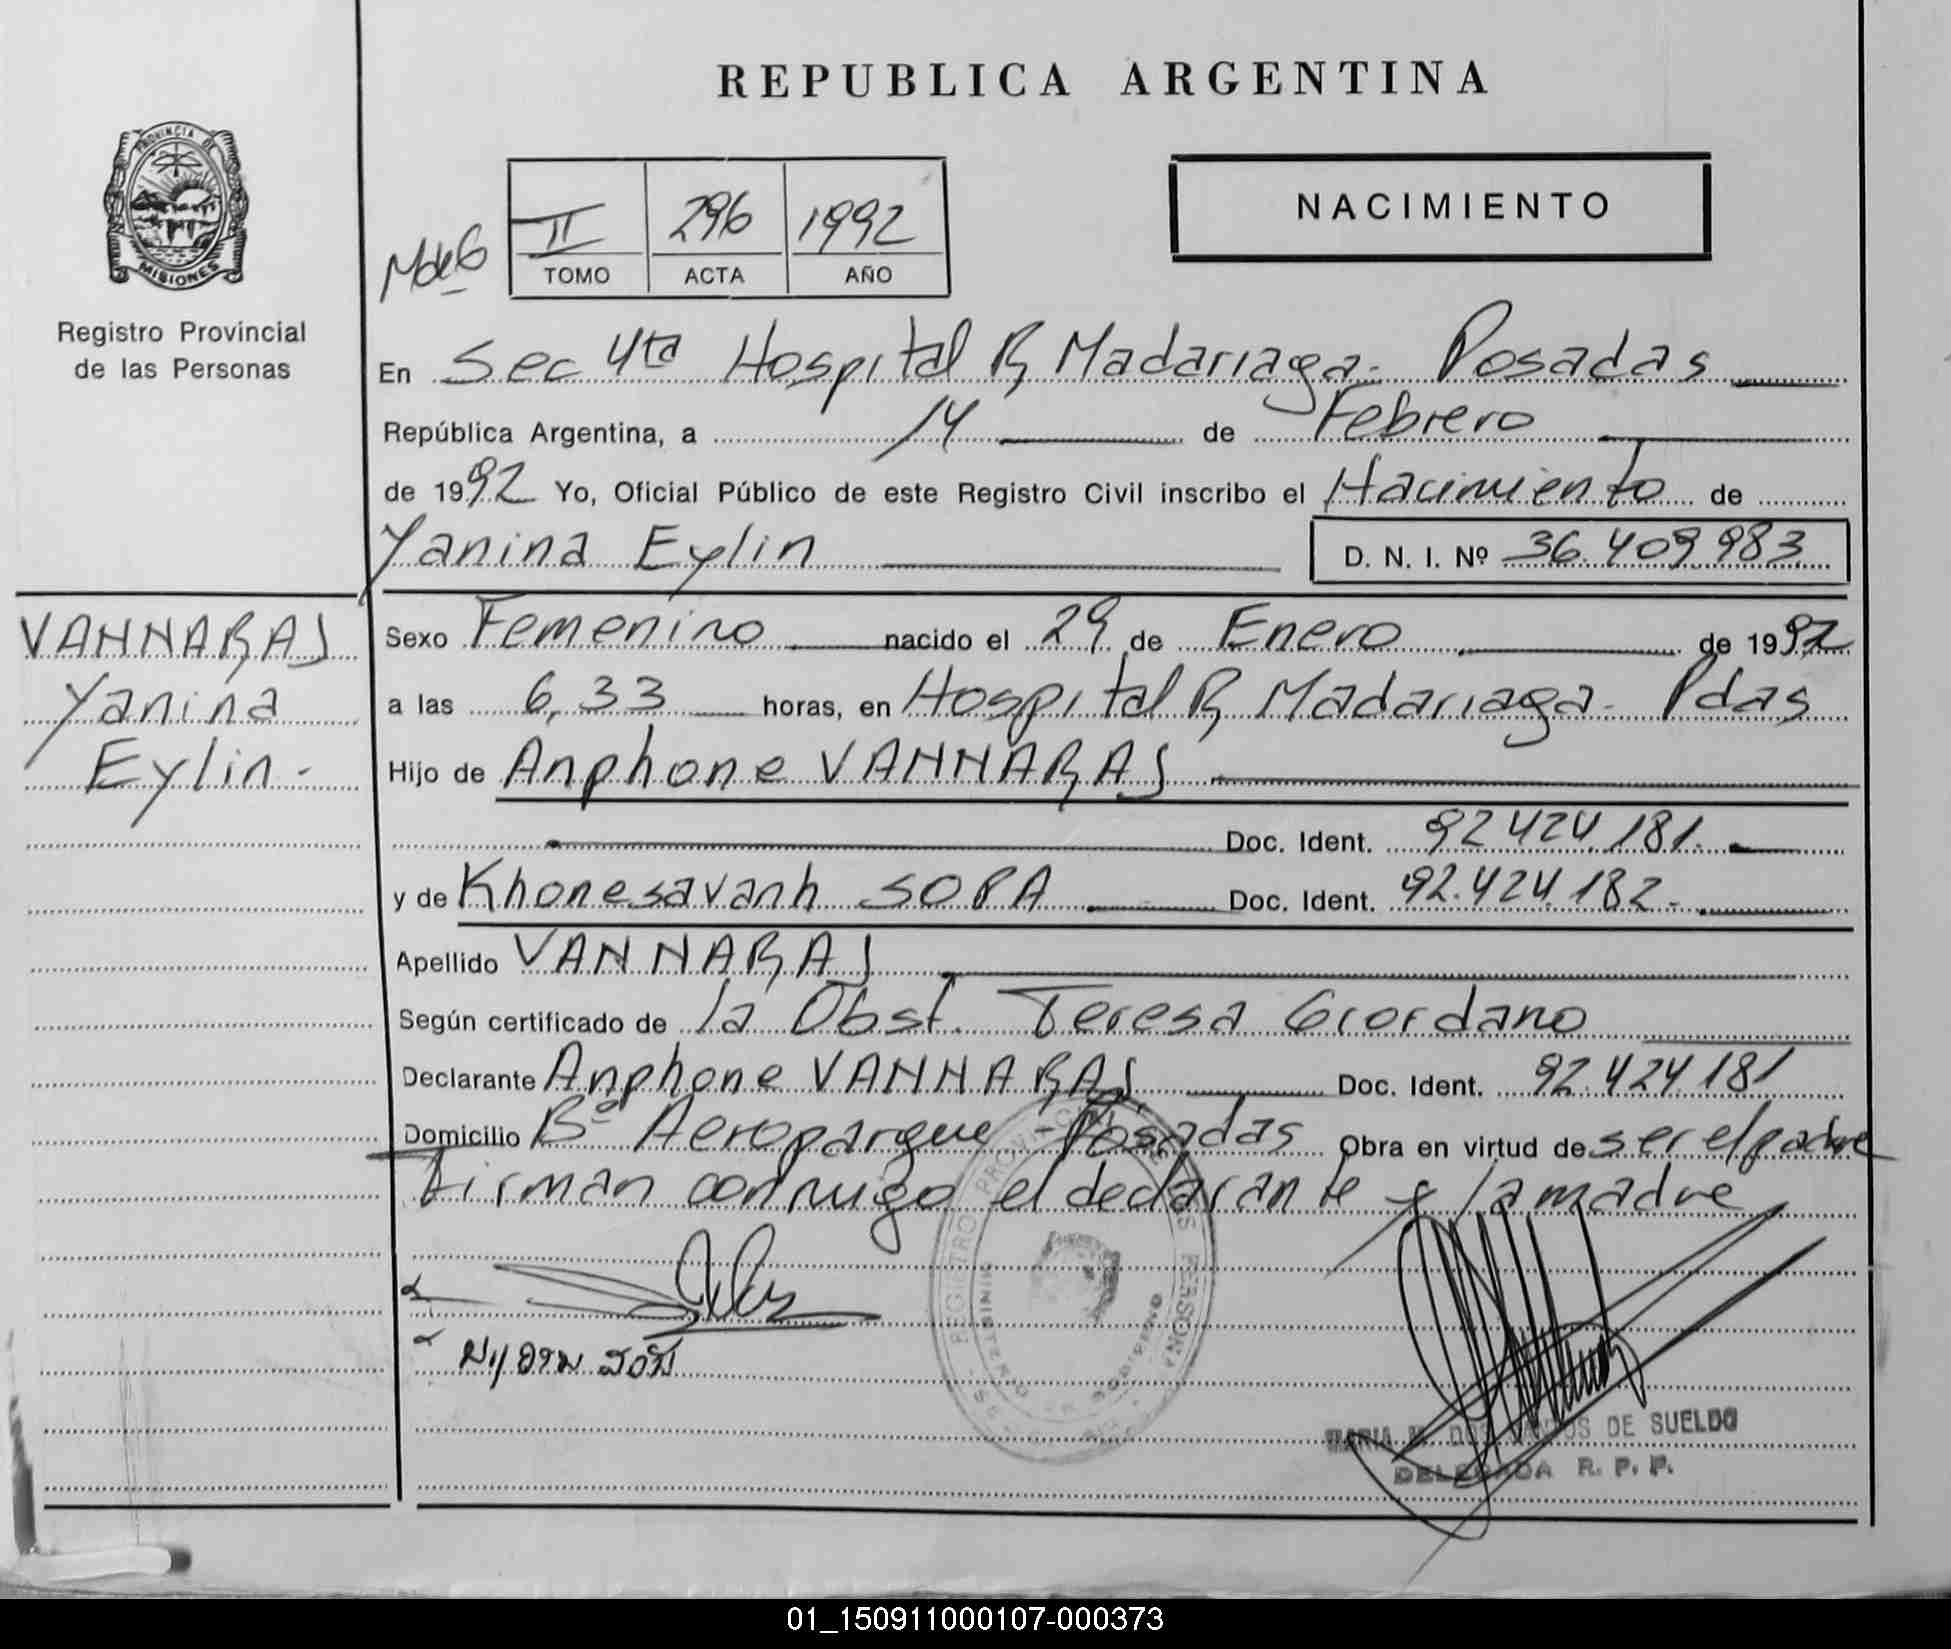 REPUBLICA ARGENTINA
PROVINCIA DE
MISIONES
Registro Provincial
de las Personas
MdeG
II 296 1992
TOMO ACTA AÑO
NACIMIENTO
En Sec 4ta Hospital R Madariaga - Posadas
República Argentina, a 14 de Febrero
de 1992 Yo, Oficial Público de este Registro Civil inscribo el Nacimiento de
Yanina Eylin D. N. I. Nº 36.409.983
VANNARAJ
Yanina
Eylin.-
Sexo Femenino nacido el 29 de Enero de 1992
a las 6,33 horas, en Hospital R Madariaga - Pdas
Hijo de Anphone VANNARAJ
Doc. Ident. 92424.181.
y de Khonesavanh SOPA Doc. Ident. 92.424.182-
Apellido VANNARAJ
Según certificado de la Obst. Teresa Giordano
Declarante Anphone VANNARAJ Doc. Ident. 92.424.181
Domicilio Bº Aeroparque - Posadas Obra en virtud de ser el padre
Firman conmigo el declarante y la madre
REGISTRO PROVINCIAL DE LAS PERSONAS
MINISTERIO DE GOBIERNO
DE SUELDO
DELEGADA R. P. P.
01_150911000107-000373